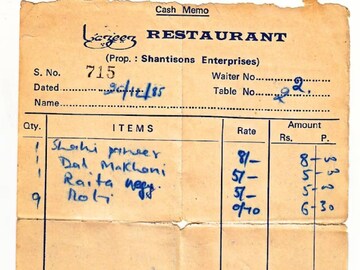 Cash Memo
Lazeez RESTAURANT
(Prop. : Shantisons Enterprises)
S. No. 715 Waiter No. 2.
Dated 20/12/85 Table No. 2
Name
Qty. ITEMS Rate Amount
Rs. P.
1 Shahi paneer 8/- 8 -
1 Dal Makhani 5/- 5 -
1 Raita 5/- 5 -
9 Roti 0/70 6 - 30